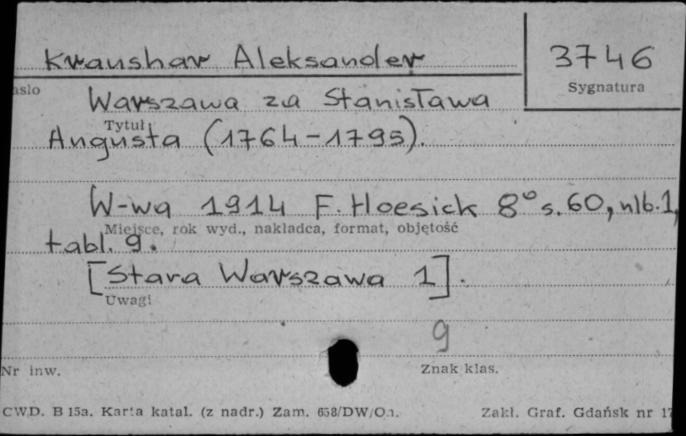 Kraushar Aleksander
3746
asło
Sygnatura
Warszawa za Stanisława
Tytuł
Augusta (1764-1795).
W-wa 1914 F. Hoesick 8° s. 60, nlb. 1,
Miejsce, rok wyd., nakładca, format, objętość
tabl. 9.
[Stara Warszawa 1].
Uwagi
9
Nr inw.
Znak klas.
CWD. B 15a. Karta katal. (z nadr.) Zam. 658/DW/On.
Zakł. Graf. Gdańsk nr 17